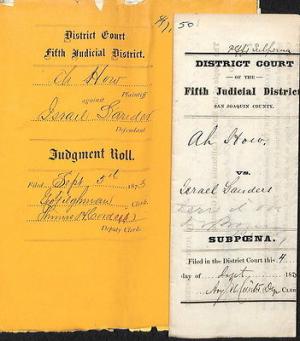 District Court
Fifth Judicial District.
Ah How
Plaintiff
against
Israel
Defendant
Judgment Roll.
Filed Sept 5th 1873
Clerk
Deputy Clerk
50
DISTRICT COURT
OF THE
Fifth Judicial District
SAN JOAQUIN COUNTY.
Ah How.
vs.
Israel Landers
SUBPŒNA,
Filed in the District Court this 4
day of Sept 187
Clerk